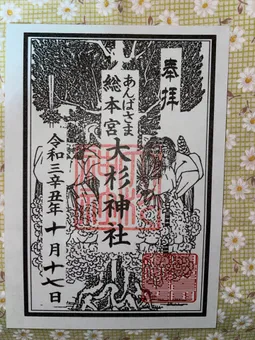 奉拝
あんばさま
総本宮
大杉神社
令和三辛丑年十月十七日